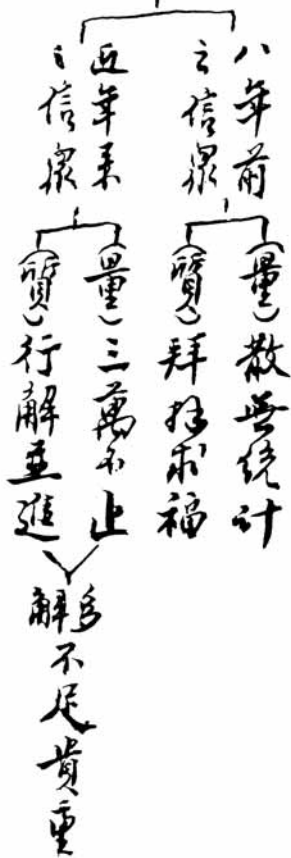 八年前
之信眾
(量)散無統計
(質)拜拜求福
近年來
之信眾
(量)三萬不止
(質)行解並進
解
不足貴重